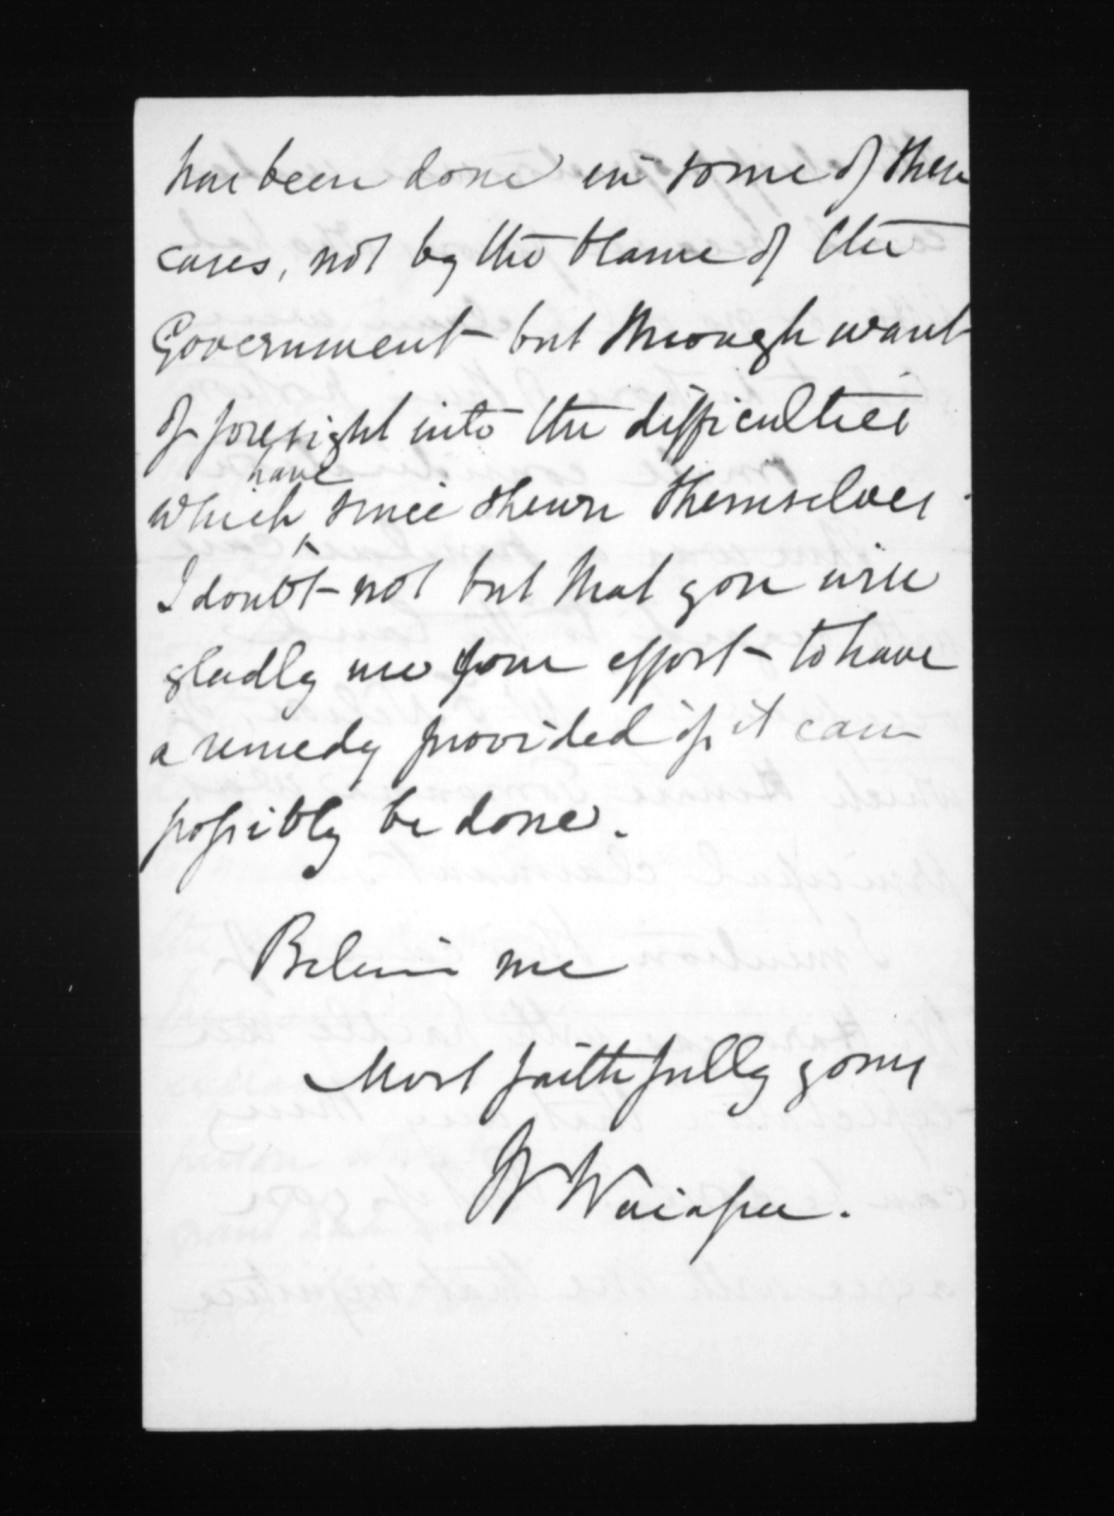 has been done in some of these
cases, not by the blame of the
Government but through want
of foresight into the difficulties
which have since shewn themselves.
I doubt not but that you will
gladly use your effort to have
a remedy provided if it can
possibly be done.
Believe me
Most faithfully yours
W Waiapu.